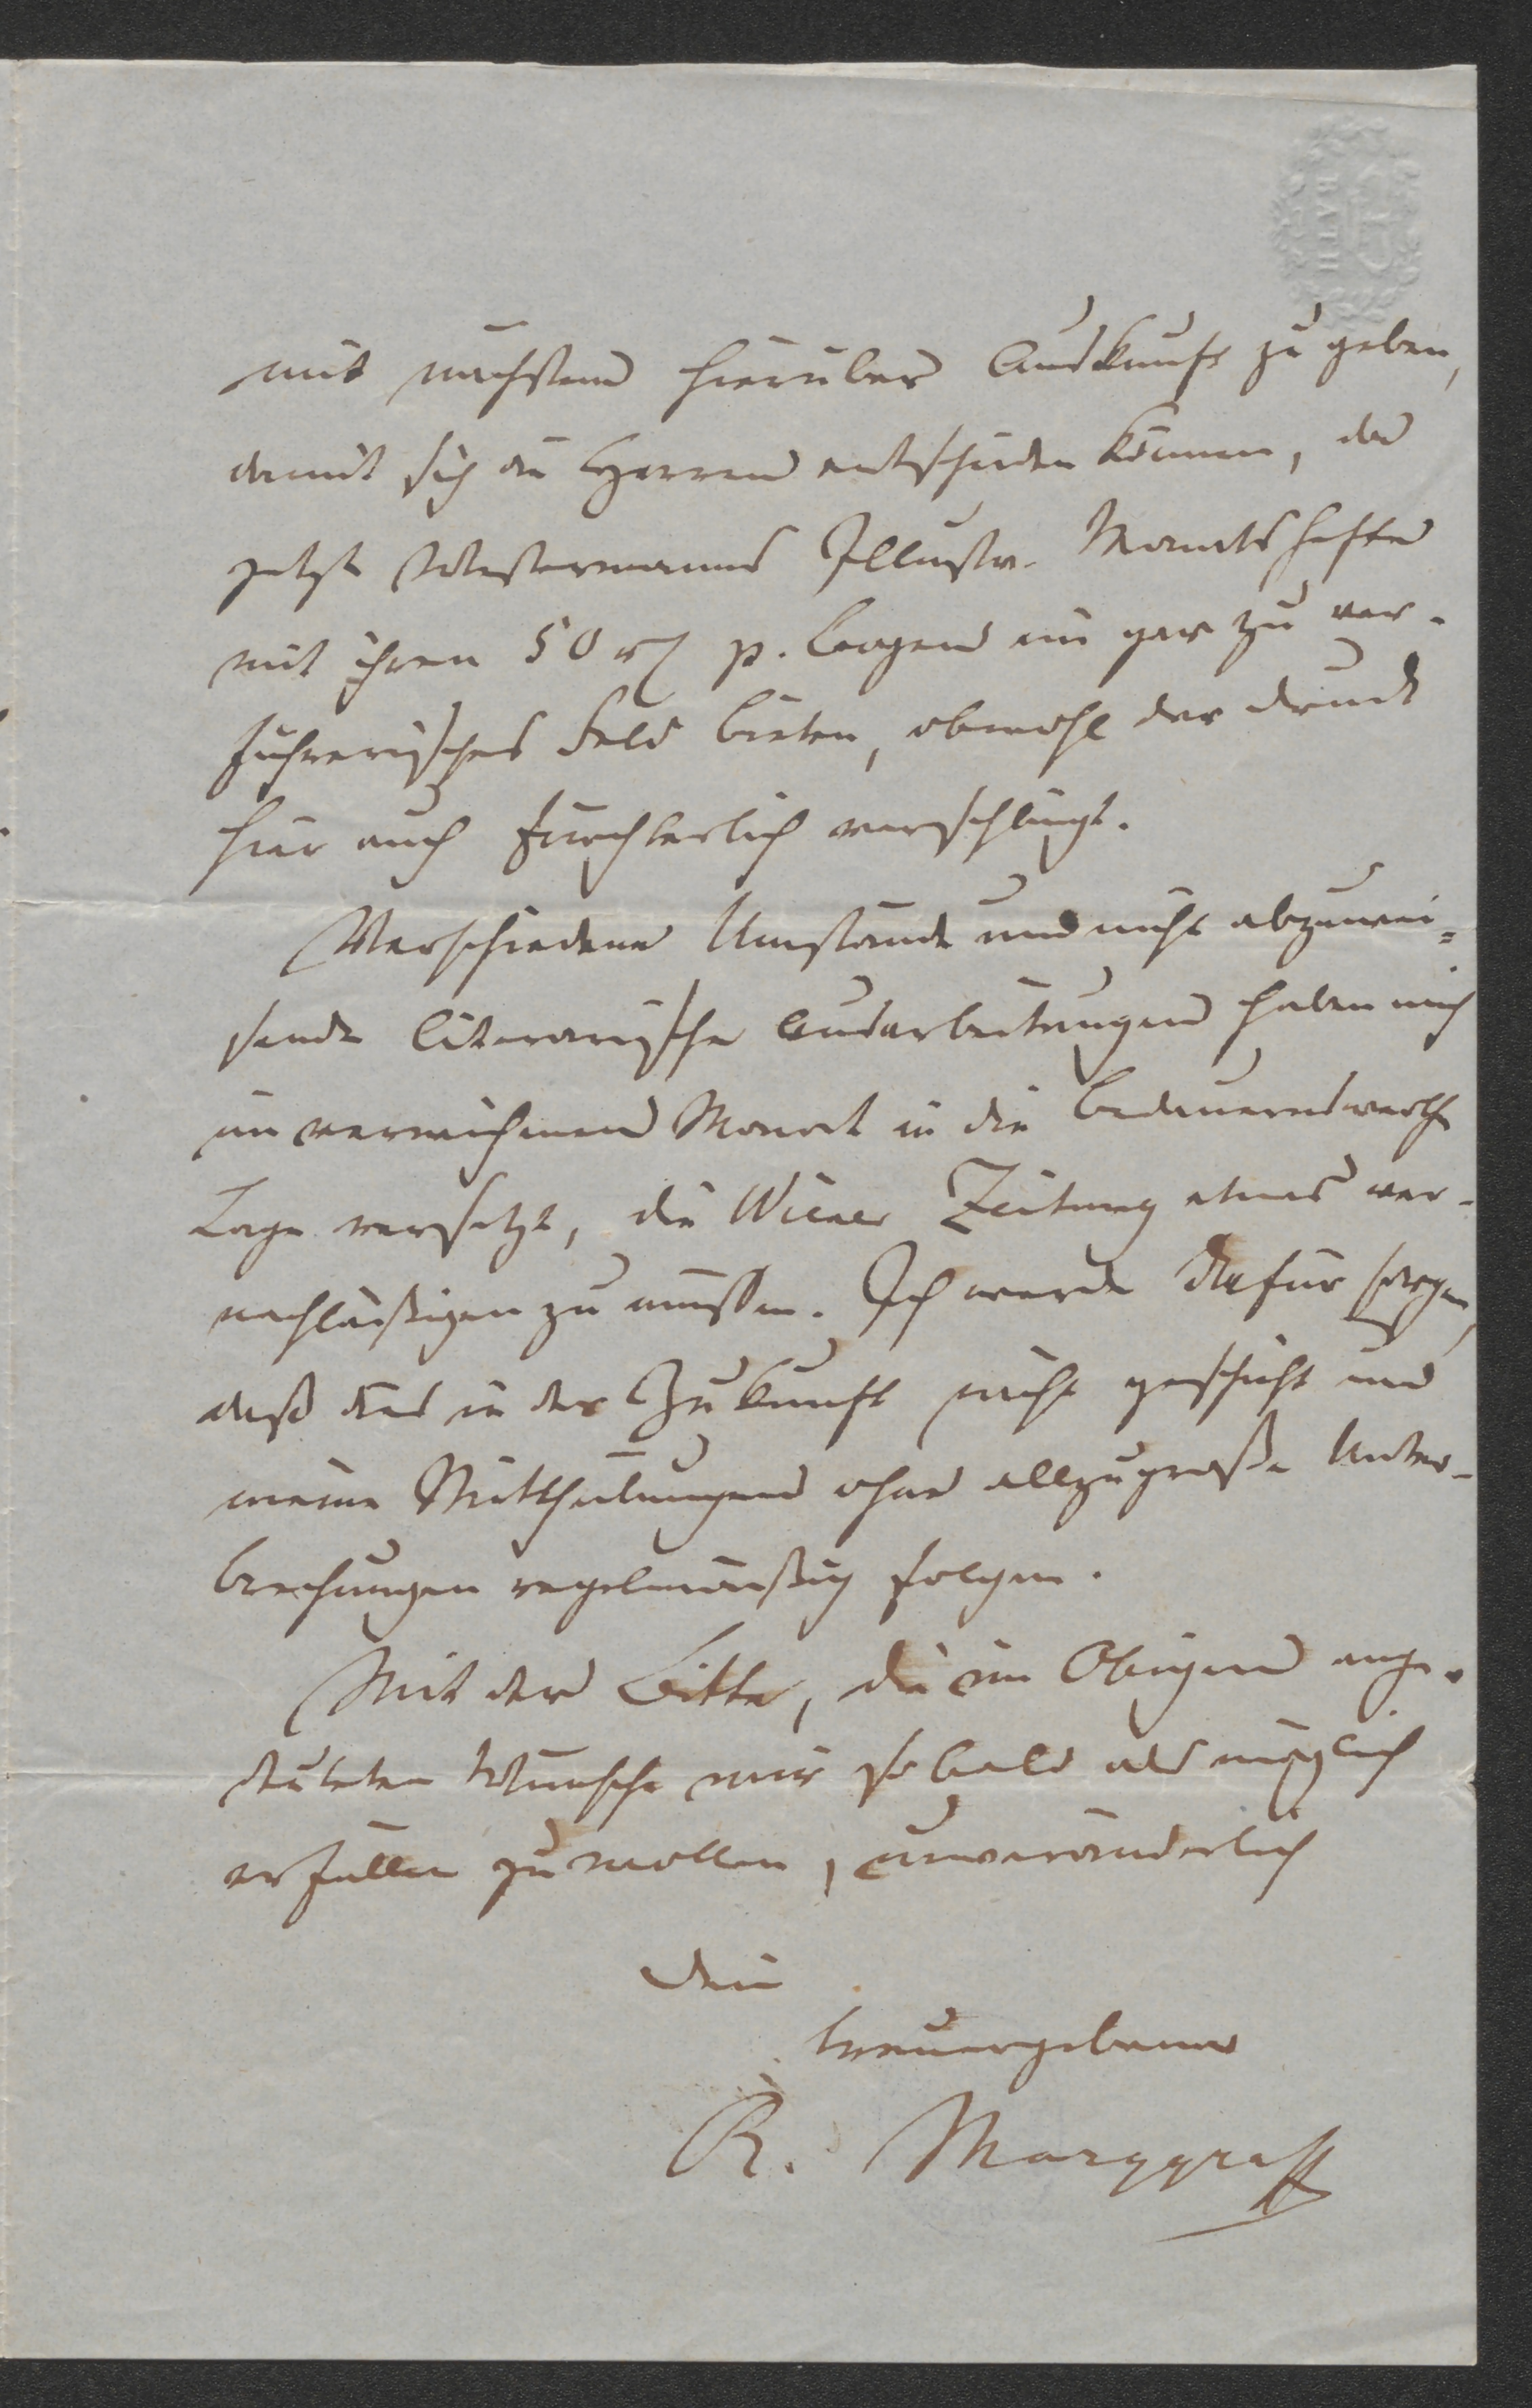 BATH
mit nächstem hierüber Auskunft zu geben,
damit sich die Herren entscheiden können, da
jetzt Westermanns Illustr. Monatshefte
mit ihren 50 rℓ p. Bogen ein gar zu ver-
führerisches Feld bieten, obwohl der Druck
hier auch fürchterlich verschlingt.
Verschiedene Umstände und nicht abzuwei=
sende literarische Ausarbeitungen haben mich
im verwichenen Monat in die bedauernswerthe
Lage versetzt, die Wiener Zeitung etwas ver-
nachläßigen zu müssen. Ich werde dafür sorgen,
daß dies in der Zukunft nicht geschieht und
meine Mittheilungen ohne allzugroße Unter-
brechungen regelmäßig folgen.
Mit der Bitte, die im Obigen ange-
deuteten Wünsche mir sobald als möglich
erfüllen zu wollen, unveränderlich
Dein
treuergebener
R. Marggraff